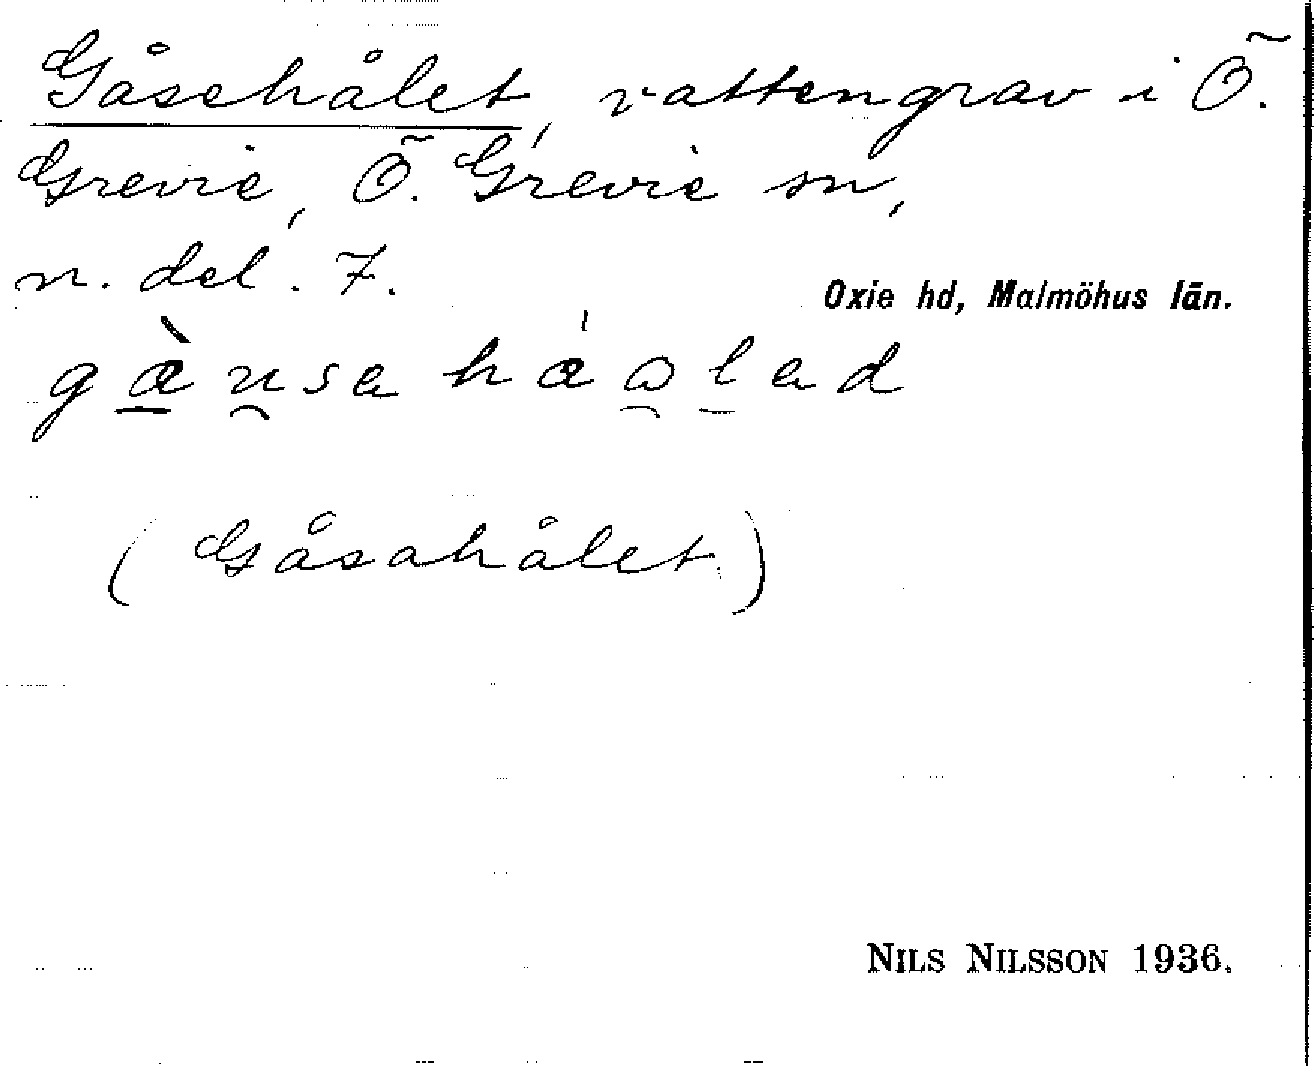 Gåsehålet, vattengrav i Ö.
Grevie, Ö. Grevie sn,
n. del. 7.
Oxie hd, Malmöhus län.
(Gåsahålet)
NILS NILSSON 1936.